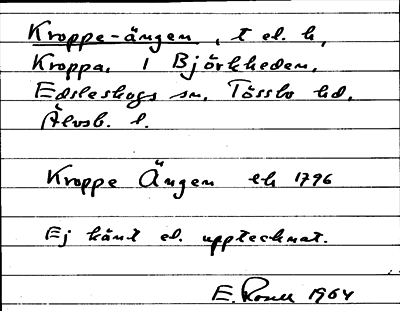 Kroppe-ängen, t el. h,
Kroppa, 1 Björkheden,
Edsleskogs sn, Tössbo hd,
Älvsb. l.
Kroppe Ängen eh 1796
Ej känt el. upptecknat.
E. Rosell 1964